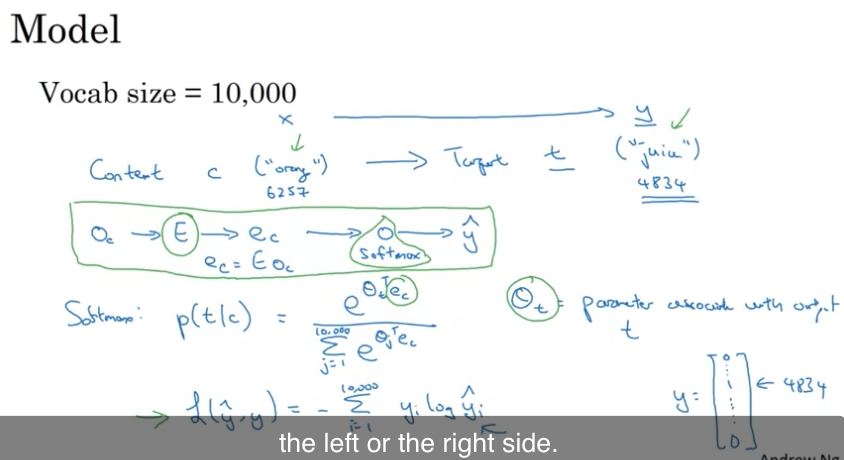 Model
Vocab size = 10,000
x → y
Content c ("orang") → Target t ("juice")
6257 4834
O_c → E → e_c → O → ŷ
softmax
e_c = E O_c
Softmax: p(t|c) = e^{θ_t^T e_c} / Σ_{j=1}^{10,000} e^{θ_j^T e_c} θ_t = parameter associated with output t
L(ŷ, y) = - Σ_{i=1}^{10,000} y_i log ŷ_i
y = [0 ⋮ 1 ⋮ 0] ← 4834
the left or the right side.
Andrew Ng